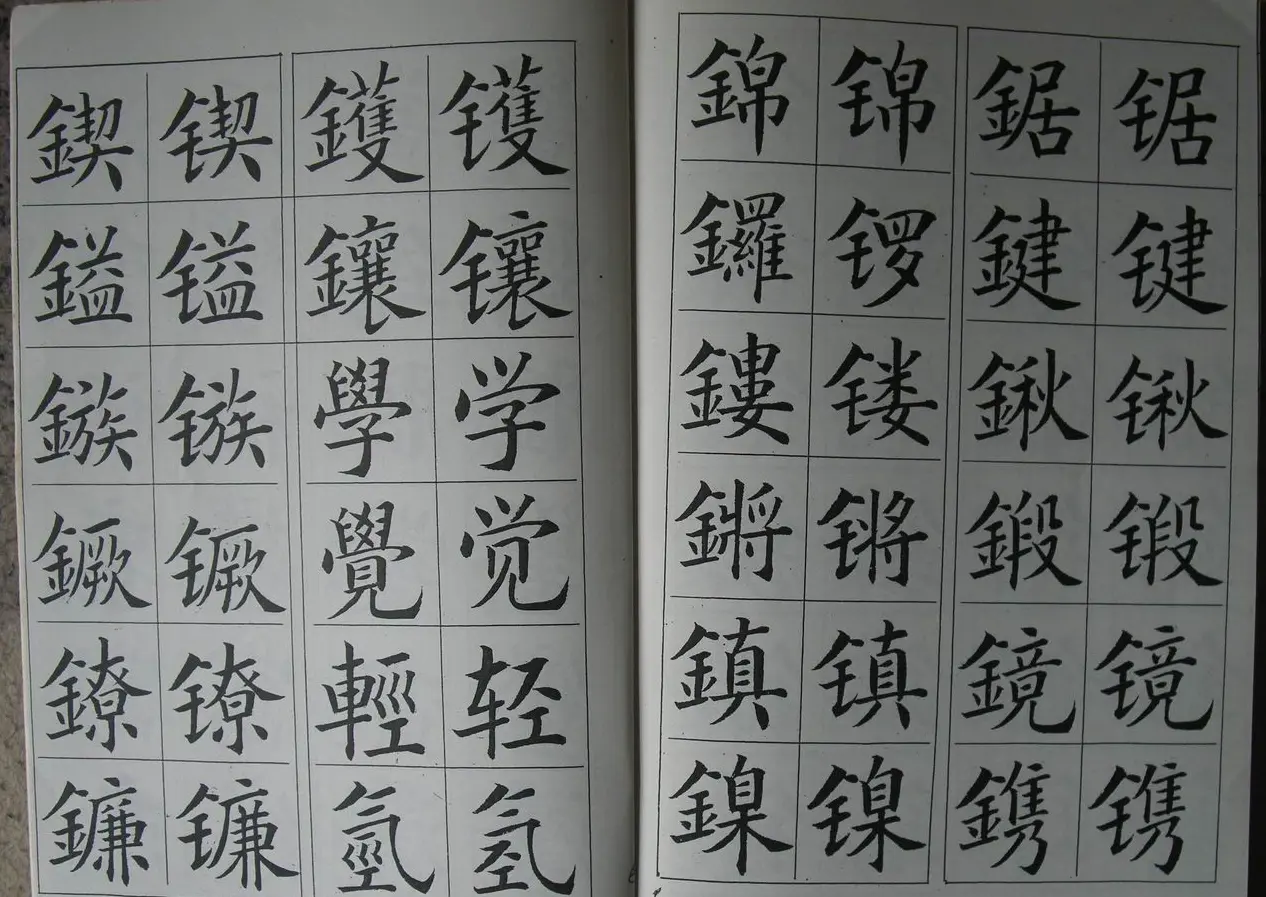 鍥 锲 鑊 镬
鎰 镒 鑲 镶
鏃 镞 學 学
鐝 镢 覺 觉
鐐 镣 輕 轻
鐮 镰 氫 氢
錦 锦 鋸 锯
鑼 锣 鍵 键
鏤 镂 鍬 锹
鏘 锵 鍛 锻
鎮 镇 鏡 镜
鎳 镍 鐫 镌